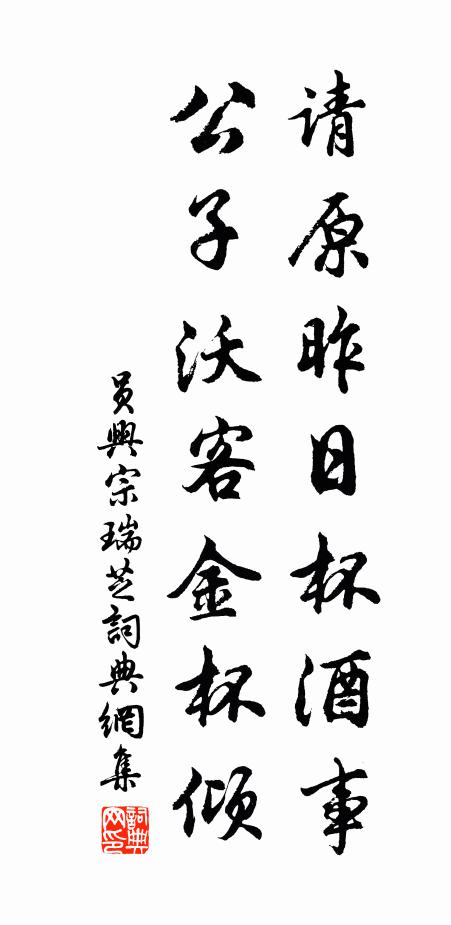 请原昨日杯酒事
公子沃客金杯倾
员興宗瑞芝詞典網集
詞典网印